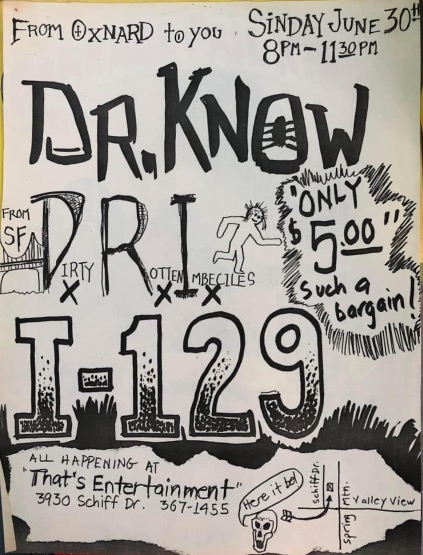 From Oxnard to you
Sinday June 30th
8PM-1130PM
DR. KNOW
FROM
SF
DRI
Dirty Rotten Imbeciles
"ONLY
$5.00"
Such a
bargain!
I-129
ALL HAPPENING AT
"That's Entertainment"
3930 Schiff Dr. 367-1455
Here it be!
Schiff Dr.
Spring Mtn.
Valley View